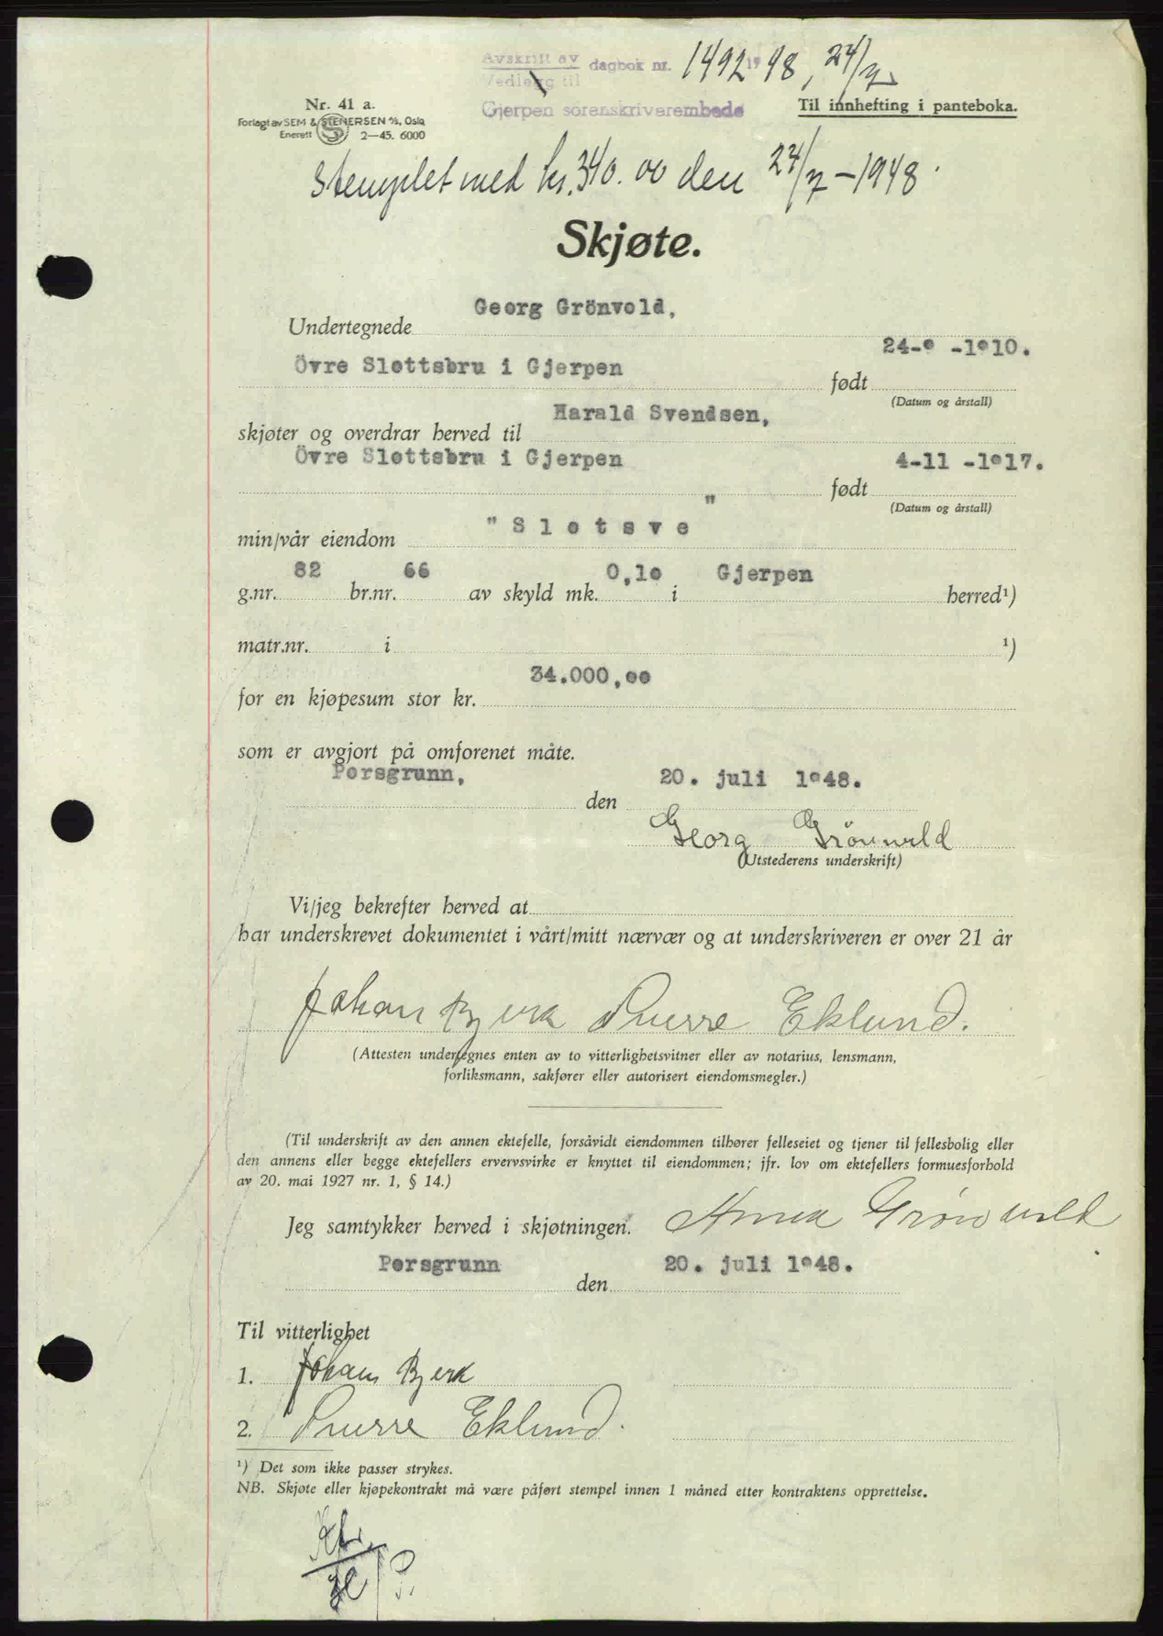 Avskrift av dagbok nr. 1492 1948, 24/7
Vedlegg til
Gjerpen sorenskriverembede
Nr. 41 a.
Til innhefting i panteboka.
Forlagt av SEM & STENERSEN A/S, Oslo
Enerett S 2—45. 6000
Stemplet med kr. 340.00 den 24/7 – 1948.
Skjøte.
Georg Grönvold,
Undertegnede
24- -1910.
Övre Slottsbru i Gjerpen
født
(Datum og årstall)
Harald Svendsen,
skjøter og overdrar herved til
Övre Slottsbru i Gjerpen 4-11 -1917.
født
(Datum og årstall)
" S l o t s v e "
min/vår eiendom
82 66 0,10 Gjerpen
g.nr. br.nr. av skyld mk. i herred¹)
matr.nr. i ¹)
34.000,00
for en kjøpesum stor kr.
som er avgjort på omforenet måte.
Porsgrunn, 20. juli 1948.
den
Georg Grönvold
(Utstederens underskrift)
Vi/jeg bekrefter herved at
har underskrevet dokumentet i vårt/mitt nærvær og at underskriveren er over 21 år
Johan Bjerk Sverre Eklund.
(Attesten undertegnes enten av to vitterlighetsvitner eller av notarius, lensmann,
forliksmann, sakfører eller autorisert eiendomsmegler.)
(Til underskrift av den annen ektefelle, forsåvidt eiendommen tilhører felleseiet og tjener til fellesbolig eller
den annens eller begge ektefellers ervervsvirke er knyttet til eiendommen; jfr. lov om ektefellers formuesforhold
av 20. mai 1927 nr. 1, § 14.)
Jeg samtykker herved i skjøtningen. Anna Grönvold
Porsgrunn 20. juli 1948.
den
Til vitterlighet
1. Johan Bjerk
2. Sverre Eklund.
¹) Det som ikke passer strykes.
NB. Skjøte eller kjøpekontrakt må være påført stempel innen 1 måned etter kontraktens opprettelse.